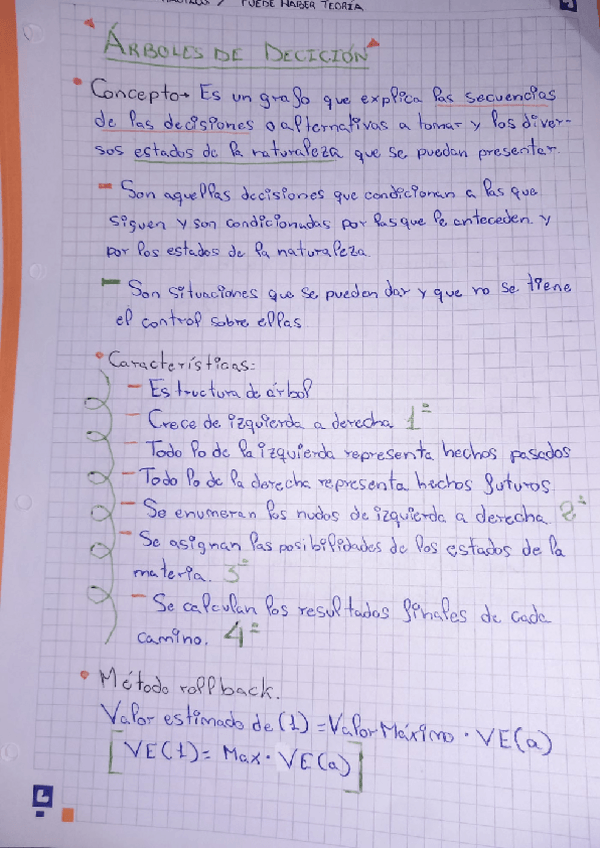 PUEDE HABER TEORÍA
ÁRBOLES DE DECICIÓN
Concepto→ Es un grafo que explica las secuencias
de las decisiones o alternativas a tomar y los diver-
sos estados de la naturaleza que se puedan presentar.
- Son aquellas decisiones que condicionan a las que
siguen y son condicionadas por las que le anteceden y
por los estados de la naturaleza.
- Son situaciones que se pueden dar y que no se tiene
el control sobre ellas.
• Características:
- Estructura de árbol
- Crece de izquierda a derecha 1º
- Todo lo de la izquierda representa hechos pasados
- Todo lo de la derecha representa hechos futuros.
- Se enumeran los nudos de izquierda a derecha 2º
- Se asignan las posibilidades de los estados de la
materia. 3º
- Se calculan los resultados finales de cada
camino. 4º
• Método rollback.
Valor estimado de (1) = Valor Máximo · VE(a)
[VE(1) = Max · VE(a)]